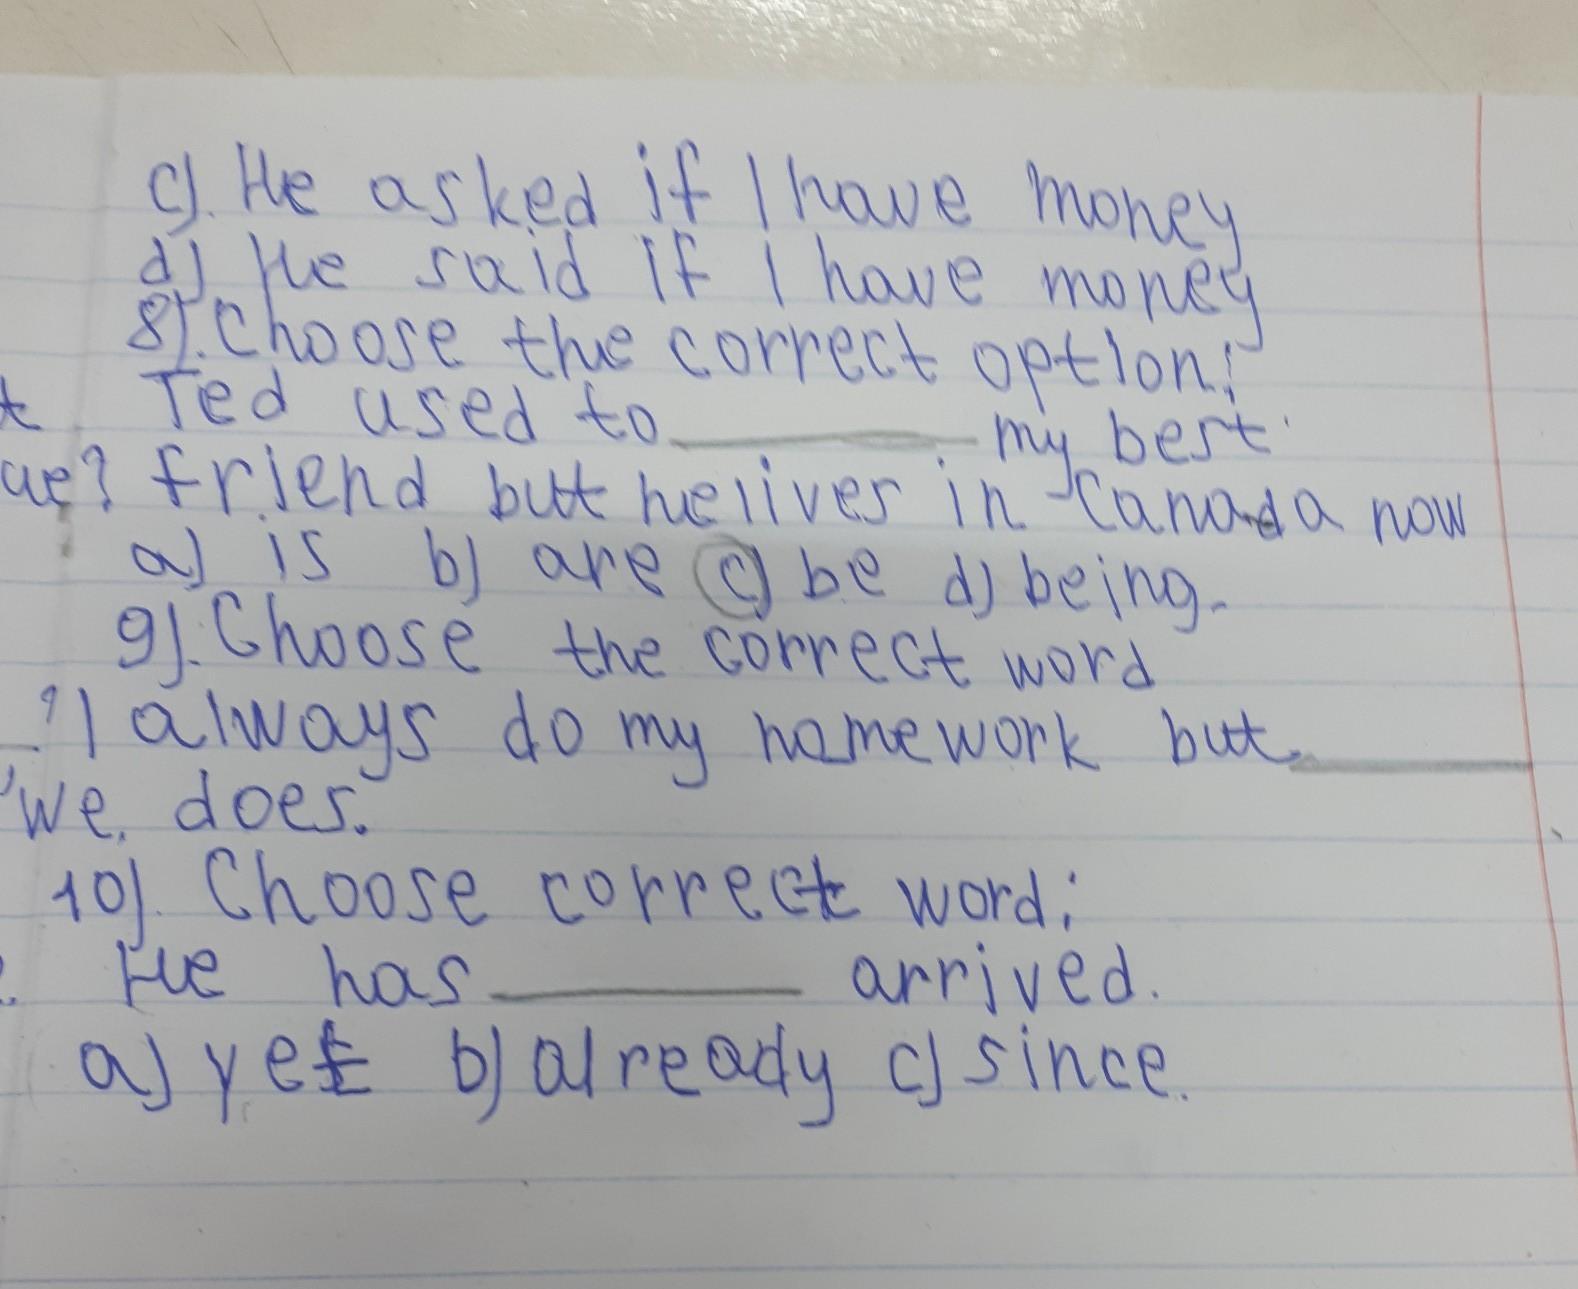 c). He asked if I have money
d) He said if I have money
8). Choose the correct option:
Ted used to ________ my best
friend but he lives in Canada now
a) is b) are c) be d) being.
9). Choose the correct word
I always do my homework but ________
does.
10). Choose correct word:
He has ________ arrived.
a) yet b) already c) since.
we.